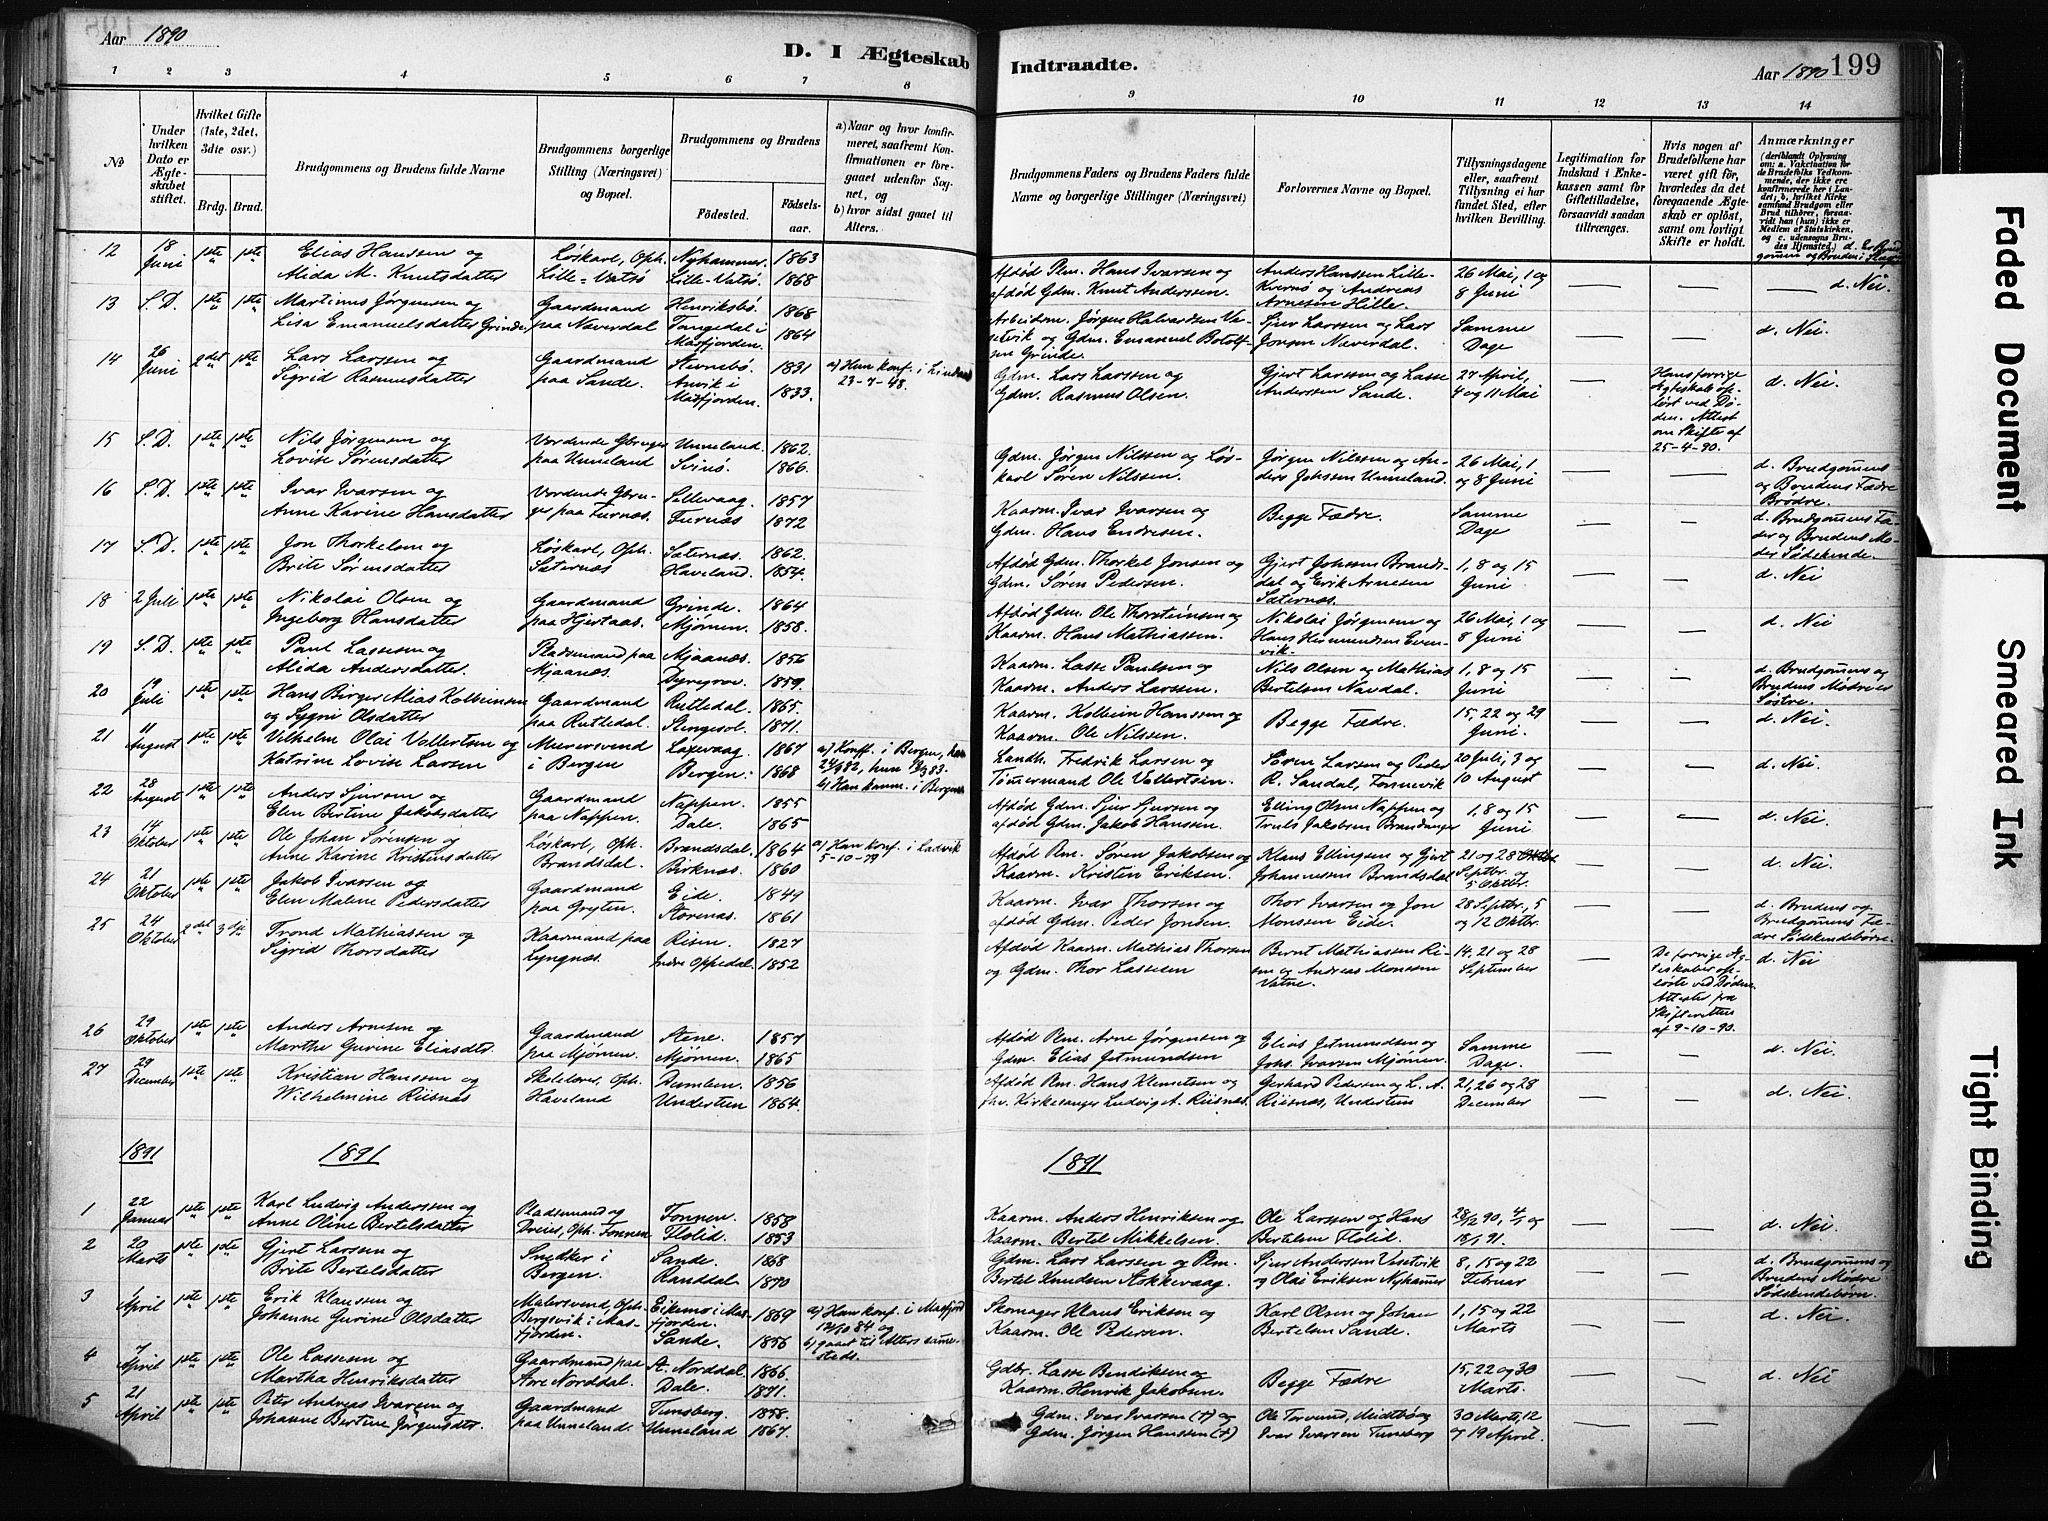 Aar 1890
D. I Ægteskab
Indtraadte.
Aar 1890
199
1 2 3 4 5 6 7 8
9 10 11 12 13 14
No
Under hvilken Dato er Ægteskabet stiftet.
Hvilket Gifte (1ste, 2det, 3die osv.)
Brdg. Brud.
Brudgommens og Brudens fulde Navne
Brudgommens borgerlige Stilling (Næringsvei) og Bopæl.
Brudgommens og Brudens
Fødested.
Fødselsaar.
a) Naar og hvor konfirmeret, saafremt Konfirmationen er foregaaet udenfor Sognet, og
b) hvor sidst gaaet til Alters.
Brudgommens Faders og Brudens Faders fulde Navne og borgerlige Stillinger (Næringsvei)
Forlovernes Navne og Bopæl.
Tillysningsdagene eller, saafremt Tillysning ei har fundet Sted, efter hvilken Bevilling.
Legitimation for Indskud i Enkekassen samt for Giftetilladelse, forsaavidt saadan tiltrænges.
Hvis nogen af Brudefolkene har været gift før, hvorledes da det foregaaende Ægteskab er opløst, samt om lovligt Skifte er holdt.
Anmærkninger
(deriblandt Oplysning om: a. Vakcination for de Brudefolks Vedkommende, der ikke ere konfirmerede her i Landet; b. hvilket Kirkesamfund Brudgom eller Brud tilhører, forsaavidt han (hun) ikke er Medlem af Statskirken, og c. udensogns Brudes Hjemsted.)
12 18 Juni 1ste 1ste Elias Hanssen og Løskarl, Oph. Nyhammer 1863
Alida M. Knutsdatter Lille-Vatsö Lille-Vatsö. 1868
Afdød Plm. Hans Ivarsen og Anders Hanssen Lille- 26 Mai, 1 og — — d. Nei.
afdød Gdm. Knut Anderssen. Kversö og Andreas Arnesen Hille 8 Juni
13 S.D. 1ste 1ste Martinus Jørgensen og Gaardmand Henriksbö. 1868
Lisa Emanuelsdatter Grinde paa Naverdal Tangedal i Masfjorden. 1864
Arbeidsm. Jørgen Halvardsen Vesetvik og Gdm. Emanuel Botolfsen Grinde. Sjur Larssen og Lars Jonsen Naverdal. Samme Dage — — d. Nei.
14 26 Juni 2det 1ste Lars Larssen og Gaardmand Stevnebö. 1831 a) Hun konf. i Lindaas
Sigrid Rasmusdatter paa Sande. Anvik i Masfjorden. 1833. 23-7-48.
Gdm. Lars Larssen og Gjert Larssen og Lasse 27 April, — Hans forrige Ægteskab opløst ved Döden. Attest om Skifte af 25-4-90. d. Nei
Gdm. Rasmus Olsen. Anderssen Sande. 4 og 11 Mai
15 S.D. 1ste 1ste Nils Jørgensen og Vordende Gbruger Unneland. 1862.
Lovise Sørensdatter paa Unneland Svinö. 1866.
Gdm. Jørgen Nilssen og Løskarl Søren Nilssen. Jørgen Nilssen og Anders Johssen Unneland. 26 Mai, 1 og 8 Juni — — d. Brudgommens og Brudens Fædre Brødre.
16 S.D. 1ste 1ste Ivar Ivarsen og Vordende Gbru- Sellevaag 1857
Anne Karine Hansdatter ger paa Furnæs. Furnæs 1872
Kaarm. Ivar Ivarsen og Begge Fædre. Samme — — d. Brudgommens Fader og Brudens Moder Södskende.
Gdm. Hans Endresen. Dage
17 S.D. 1ste 1ste Jon Thorkelsen og Løskarl, Oph. Sæternæs. 1862.
Brite Sørensdatter Sæternæs Haveland. 1854.
Afdød Gdm. Thorkel Jonsen og Gjert Johssen Brands- 1, 8 og 15 — — d. Nei
Gdm. Søren Pedersen. dal og Erik Arnesen Sæternæs. Juni
18 2 Juli 1ste 1ste Nikolai Olsen og Gaardmand Grinde. 1864
Ingeborg Hansdatter paa Hjertaas. Mjømen. 1858.
Afdød Gdm. Ole Thorsteinsen og Nikolai Jørgensen og 26 Mai, 1 og — — d. Nei
Kaarm. Hans Mathiassen. Hans 8 Juni
19 S.D. 1ste 1ste Paul Lassesen og Pladsemand paa Mjaanæs. 1856
Alida Andersdatter. Mjaanæs. Dyregrov. 1859.
Kaarm. Lasse Paulsen og Nils Olsen og Mathias 1, 8 og 15 — — d. Brudgommens og Brudens Mødre er Søstre.
Kaarm. Anders Larssen. Bertelsen Navdal. Juni
20 19 Juli 1ste 1ste Hans Berger Alias Kolbeinsen Gaardmand Rutledal. 1865.
og Sygni Olsdatter paa Rutledal. Stengesol. 1871.
Kaarm. Kolbein Hanssen og Begge Fædre. 15, 22 og 29 — — d. Nei
Kaarm. Ole Nilssen. Juni.
21 11 August 1ste 1ste Vilhelm Olai Vollertsen og Murersvend Laxevaag 1867 a) Konf. i Bergen, han
Katrine Lovise Larsen i Bergen Bergen. 1868 24/9 82, hun 83.
b) Han komm. i Bergen
Landh. Fredrik Larsen og Søren Larsen og Peder 20 Juli, 3 og — — d. Nei.
Tømmermand Ole Vollertsen. R. Sandal, Fonnevik 10 August
22 28 August 1ste 1ste Anders Sjursen og Gaardmand Nappen. 1855
Elen Bertine Jakobsdatter paa Nappen. Dale. 1865
Afdød Gdm. Sjur Sjursen og Elling Olsen Nappen og 1, 8 og 15 — — d. Nei.
afdød Gdm. Jakob Hanssen. Truls Jakobsen Brandanger Juni
23 14 Oktober 1ste 1ste Ole Johan Sørensen og Løskarl, Oph. Brandsdal. 1864 a) Han konf. i Ladvik
Anne Karine Kristensdatter Brandsdal. Birknæs. 1860 5-10-79
Afdød Plm. Søren Jakobsen og Klaus Ellingsen og Gjert 21 og 28 Septbr. og 5 Oktbr. — — d. Nei.
Kaarm. Kristen Eriksen. Johannessen Brandsdal
24 21 Oktober 1ste 1ste Jakob Ivarsen og Gaardmand Eide. 1849
Elen Malene Pedersdatter paa Grÿten. Storenæs. 1861
Kaarm. Ivar Thorsen og Thor Ivarsen og Jon 28 Septbr., 5 — — d. Brudens og Brudgommens Fædre Södskendebørn.
afdød Gdm. Peder Jonsen. Monssen Eide. og 12 Oktbr.
25 24 Oktober 2det 3die Trond Mathiassen og Kaarmand paa Risen. 1827
Sigrid Thorsdatter Lyngnæs. Indre Oppedal. 1852
Afdød Kaarm. Mathias Thorsen Bernt Mathiassen Ri- 14, 21 og 28 — De forrige Ægteskaber opløste ved Døden. Attester fra Skifteretten af 9-10-90. d. Nei
og Gdm. Thor Lassesen sen og Andreas Monssen Vatne. September
26 29 Oktober 1ste 1ste Anders Arnesen og Gaardmand Stene. 1857
Marthe Gurine Eliasdtr. paa Mjømen. Mjømen. 1865
Afdød Plm. Arne Jørgensen og Elias Jetmundsen og Samme — — d. Nei
Gdm. Elias Jetmundsen Johs. Ivarsen Mjømen. Dage.
27 29 December 1ste 1ste Kristian Hanssen og Skolelærer, Oph. Dumben. 1856
Wilhelmine Riisnæs Haveland Undertun 1864.
Afdød Plm. Hans Klemetsen og Gerhard Pedersen og L. A. 21, 26 og 28 — — d. Nei.
fhv. Kirkesanger Ludvig A. Riisnæs. Riisnæs, Undertun December
1891 1891 1891
1 22 Januar 1ste 1ste Karl Ludvig Anderssen og Pladsemand og Fonnen. 1858
Anne Oline Bertelsdatter Dreier, Oph. Fonnen Flolid. 1853
Kaarm. Anders Henriksen og Ole Larssen og Hans 28/12 90, 4/1 og — — d. Nei.
Kaarm. Bertel Mikkelsen. Bertelsen Flolid. 18/1 91.
2 20 Marts 1ste 1ste Gjert Larsen og Snedker i Sande. 1868
Brite Bertelsdatter Bergen. Randdal. 1870
Gdm. Lars Larssen og Plm. Sjur Anderssen Vesetvik 8, 15 og 22 — — d. Brudgommens og Brudens Mødre Södskendebørn.
Bertel Knudsen Stokkevaag. og Olai Eriksen Nyhammer Februar
3 1 April 1ste 1ste Erik Klaussen og Malersvend, Oph. Eikemo i Mas- 1869 a) Han konf. i Masfjord
Johanne Gurine Olsdatter Bergsvik i Mas- fjorden. 12/10 84 og
fjorden. Sande. 1856 b) gaaet til Alters sammesteds.
Skomager Klaus Eriksen og Karl Olsen og Johan 1, 15 og 22 — — d. Nei
Kaarm. Ole Pedersen. Bertelsen Sande. Marts
4 7 April 1ste 1ste Ole Lassesen og Gaardmand paa St. Norddal. 1866.
Martha Henriksdatter Store Norddal. Dale. 1871.
Gdbr. Lasse Bendiksen og Begge Fædre 15, 22 og 30 — — d. Nei
Kaarm. Henrik Jakobsen. Marts.
5 21 April 1ste 1ste Peter Andreas Ivarsen og Gaardmand Tunsberg. 1858.
Johanne Bertine Jørgensdtr. paa Unneland. Unneland 1867.
Gdm. Ivar Ivarsen (+) og Ole Torvund, Midtbö og 30 Marts, 12 — —
Gdm. Jørgen Hanssen (+) Ivar Ivarsen Tunsberg og 19 April.
Faded Document
Smeared Ink
Tight Binding